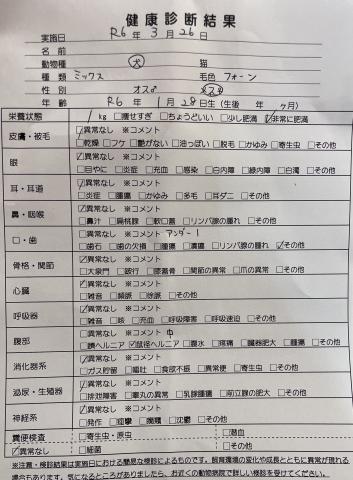 健康診断結果
実施日 R6年 3月 26日
名前
動物種 犬 猫
種類 ミックス 毛色 フォーン
性別 オス♂ メス♀
年齢 R6年 1月 28日生(生後 年 ヶ月)
栄養状態 1kg □痩せすぎ □ちょうどいい □少し肥満 ☑非常に肥満
皮膚・被毛 ☑異常なし ※コメント
□乾燥 □フケ □艶がない □油っぽい □脱毛 □かゆみ □寄生虫 □その他
眼 ☑異常なし ※コメント
□目やに □炎症 □充血 □感染 □白内障 □緑内障 □白濁 □その他
耳・耳道 ☑異常なし ※コメント
□炎症 □腫瘍 □かゆみ □多毛 □耳ダニ □その他
鼻・咽喉 ☑異常なし ※コメント
□鼻汁 □扁桃腺 □軟口蓋 □リンパ腺の腫れ □その他
口・歯 □異常なし ※コメント アンダー1
□歯石 □歯の欠損 □腫瘍 □潰瘍 □リンパ腺の腫れ ☑その他
骨格・関節 ☑異常なし ※コメント
□大泉門 □跛行 □膝蓋骨 □関節の異常 □爪の異常 □その他
心臓 ☑異常なし ※コメント
□雑音 □頻脈 □徐脈 □その他
呼吸器 ☑異常なし ※コメント
□雑音 □咳 □充血 □呼吸障害 □呼吸速迫 □その他
腹部 □異常なし ※コメント 中
□臍ヘルニア ☑鼠径ヘルニア □腹水 □疼痛 □臓器肥大 □腫瘍 □その他
消化器系 ☑異常なし ※コメント
□ガス貯留 □嘔吐 □食欲不振 □異常便 □寄生虫 □その他
泌尿・生殖器 ☑異常なし ※コメント
□排泄障害 □睾丸の異常 □乳腺腫瘍 □前立腺の肥大 □その他
神経系 ☑異常なし ※コメント
□発作 □痙攣 □癇癪 □沈鬱 □その他
糞便検査 □寄生虫・原虫 □潜血
☑異常なし □細菌 □その他
※注意・検診結果は実施日における簡易な検診によるものです。飼育環境の変化や成長とともに異常が現れる
場合もあります。気になるところがありましたら、お近くの動物病院で詳しい検診を受けてください。